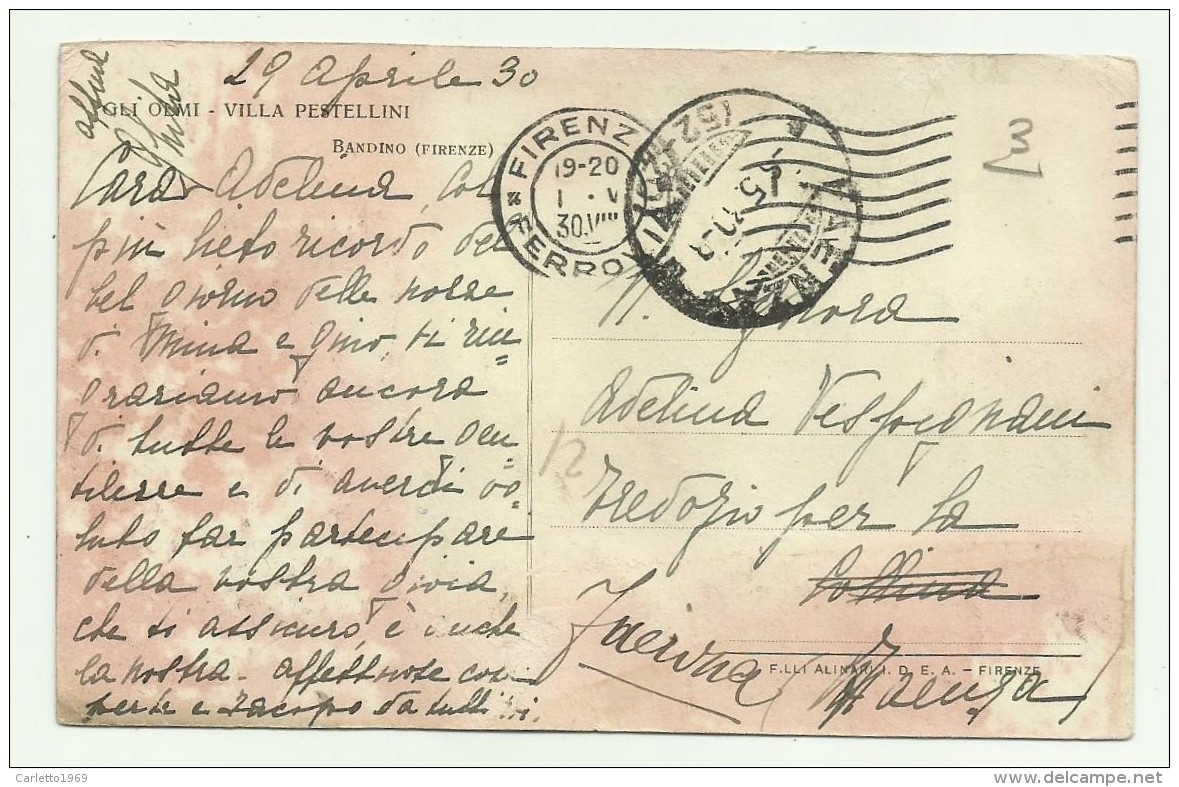 29 Aprile 30
GLI OLMI - VILLA PESTELLINI
BANDINO (FIRENZE)
Cara Adelina, Col
più lieto ricordo del
bel giorno delle nozze
di Mina e Gino, ti rin=
graziamo ancora
di tutte le vostre gen
tilezze e di averci vo=
luto far partecipare
della vostra gioia,
che ti assicuro, è anche
la nostra - affettuose
e Jacopo da tutti noi.
aff.ma
Giulia
FIRENZE
19-20
1 · V
30.VIII
FERROVIA
(52
FAENZA
3
N. Signora
Adelina Vespignani
12
Tredozio per la
Collina
Faenza
F.LLI ALINARI I. D. E. A. — FIRENZE
Carletto1969
delcampe.net